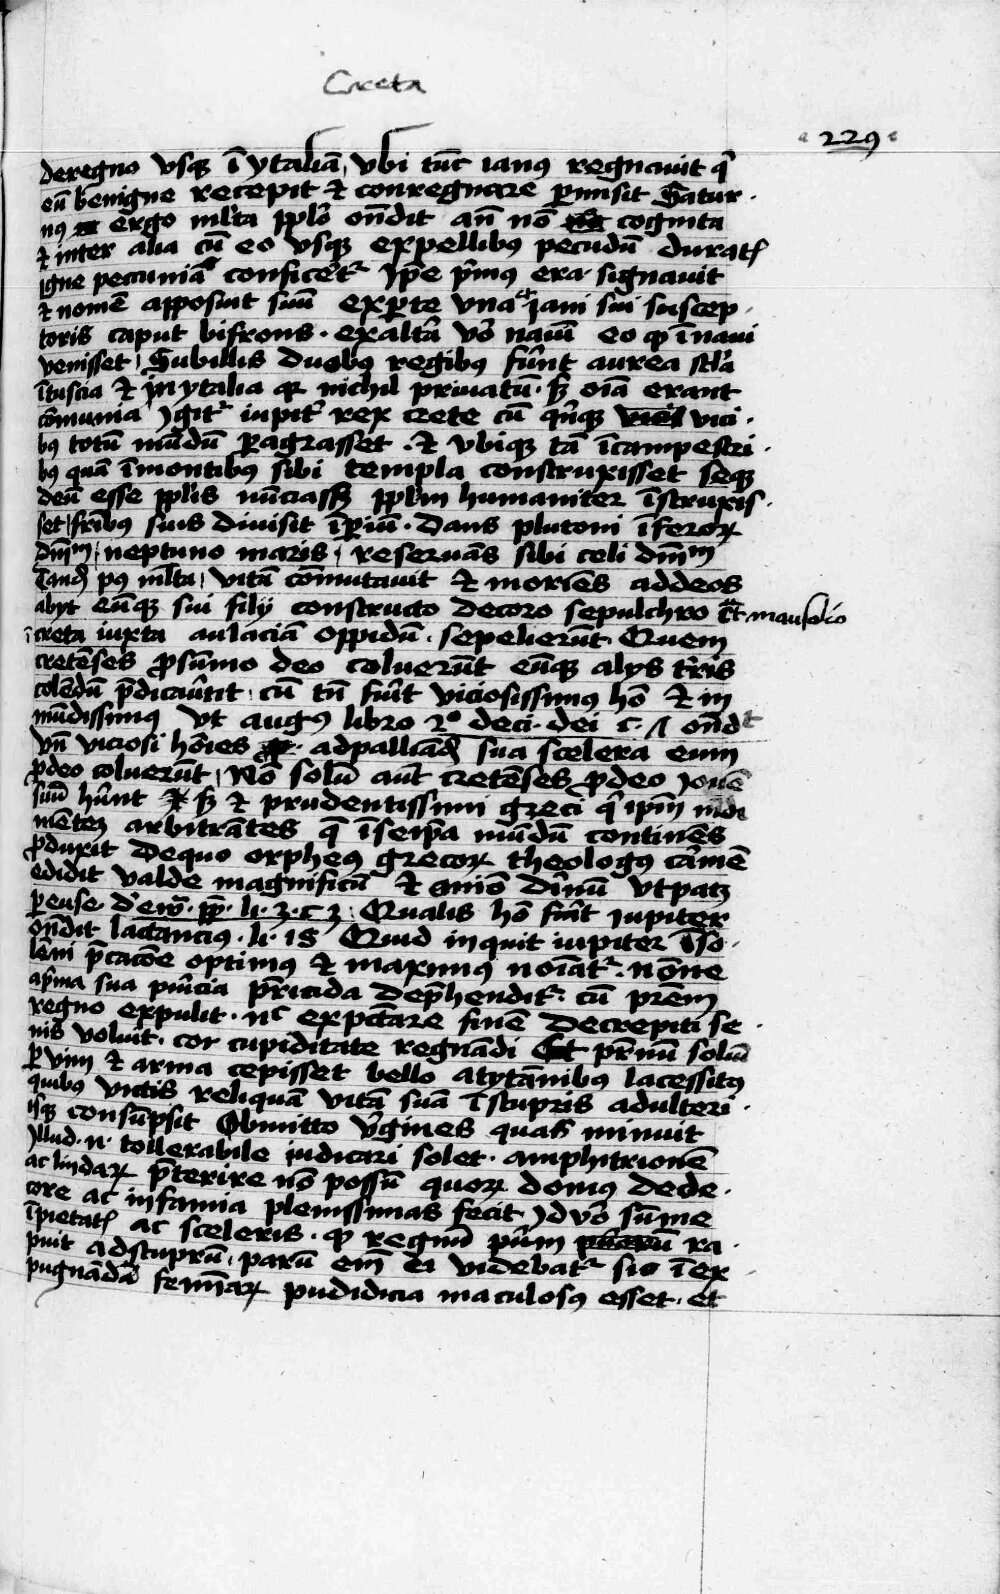 Creta
229
de regno vsq̄ ī ytaliā, vbi tūc ianꝰ regnauit qͥ
eū benigne recepit ⁊ conregnare ꝑmisit Satur-
nꝰ ergo ml̄ta ppl̄o on̄dit an̄ nō cognita
⁊ inter alia cū eo vsq̄ ex pellibꝰ pecudū
igne pecunia conficeret᷑ Ip̄e pͥmꝰ era signauit
⁊ nomē apposuit suū ex ꝑte vna ⁊ iani sui suscep-
toris caput bifrons . ex alt̄a vo᷒ nauū eo ꝙ ī naui
venisset / Sub illis duobꝰ regibꝰ fūnt aurea scl̄a
ī tuscia ⁊ in ytalia qꝛ nichil priuatū . sꝫ oīa erant
cōmunia Igit᷑ iupit᷑ rex crete cū qͥnq̄ vici-
bꝰ totū mūdū ꝑagrasset . ⁊ vbiq̄ tā ī campestri-
bꝰ quā ī montibꝰ sibi templa construxisset seq̄
deū esse ppl̄is nūciassꝫ ppl̄m humaniter īstruxis-
set / fr̄ibꝰ suis diuisit īꝑiū . Dans plutoni īferoꝝ
dn̄iū / neptuno maris / reseruās sibi celi dn̄iū
Tandē pꝰ ml̄ta / vitā cōmutauit ⁊ moriēs ad deos
abyt eūq̄ sui filij constructo decoro sepulchro mausolio
ī creta iuxta aulaciā oppidū . sepelierūt . Quem
cretēses ꝓ sūmo deo coluerūt eūq̄ alys t̄ris
colēdū p̄dicauerūt . cū tn̄ fuit viciosissimꝰ hō ⁊ in
mūdissimꝰ vt augꝰ libro 2º de ci . dei c . 7 on̄dit
vn̄ viciosi hōies ad palliādū sua scelera eum
ꝓ deo coluerūt / Nō solū aut̄ cretēses ꝓ deo Iouē
suū hn̄t sꝫ ⁊ prudentissimi greci qͥ ip̄m mūdi
mētē arbitrātes q̄ ī seip̄a mūdū continēs
ꝓduxit De quo orpheꝰ grecoꝝ theologꝰ carmē
edidit valde magnificū ⁊ omīo diuinū vt patꝫ
ꝑ euse d̄ ew̄ . pp̄ . li . 3 . c 3 . Qualis hō fuit iupiter
on̄dit lactancius . li . 15 Quid inquit iupiter ī so-
lēni p̄cacōe optimꝰ ⁊ maximꝰ noīat᷑ . nōne
a pͥma sua puͥcia pr̄icida dep̄hendit᷑ . cū pr̄em
regno expulit . nc̄ expectare finē decrepiti se-
nis voluit . cor cupiditate regnādi Et pr̄nū soliū
ꝑ vim ⁊ arma cepisset bello a tytānibꝰ lacessitꝰ
quibus victis reliquā vitā suā ī stupris adulteri-
isq̄ consūpsit Obmitto v̄gines quas iminuit
Illud . n . tollerabile iudicari solet . amphitrionē
ac lindaꝝ p̄terire nō possū quoꝝ domus dede-
core ac infamia plenissimas fecit Id vo᷒ sūme
īpietatꝭ ac sceleris . ꝙ regiū pūm ra-
puit ad stuprū . parū em̄ ei videbat᷑ si ī ex
pugnāda feminaꝝ pudicicia maculosꝰ esset . et